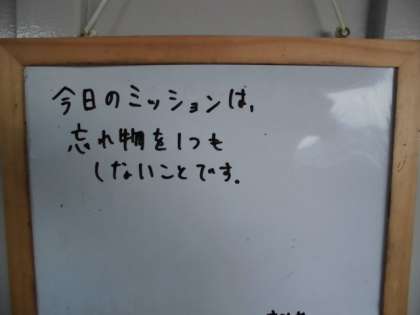 今日のミッションは、
忘れ物を1つも
しないことです。